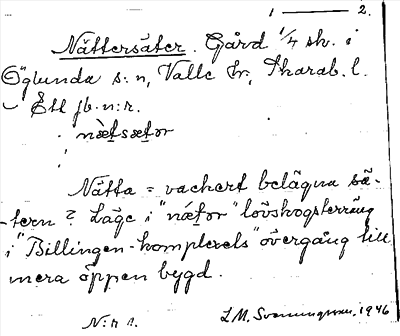 1 —— 2.
Nättersäter. Gård 1/4 sk. i
Öglunda s:n, Valle hr, Skarab. l.
Ett jb.n:r.
nætsætər
Nätta = vackert belägna sä-
-tern? Läge i "nætər" lövskogsterräng
i "Billingen-komplexets" övergång till
mera öppen bygd.
N:r 1. L.M. Svenungsson, 1946